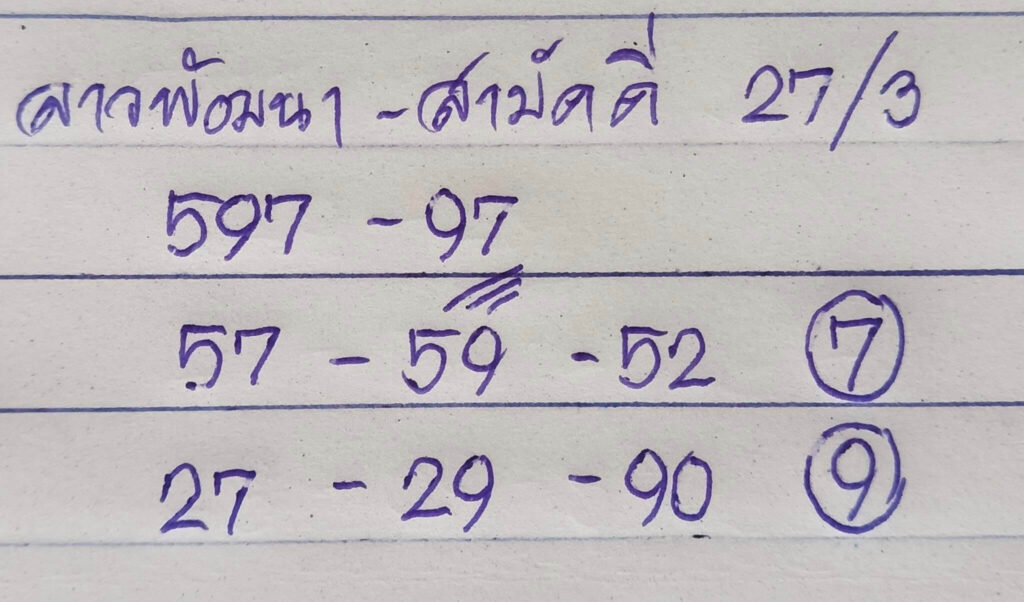 ลาวพัฒนา - สามัคคี 27/3
597 - 97
57 - 59 - 52 7
27 - 29 - 90 9